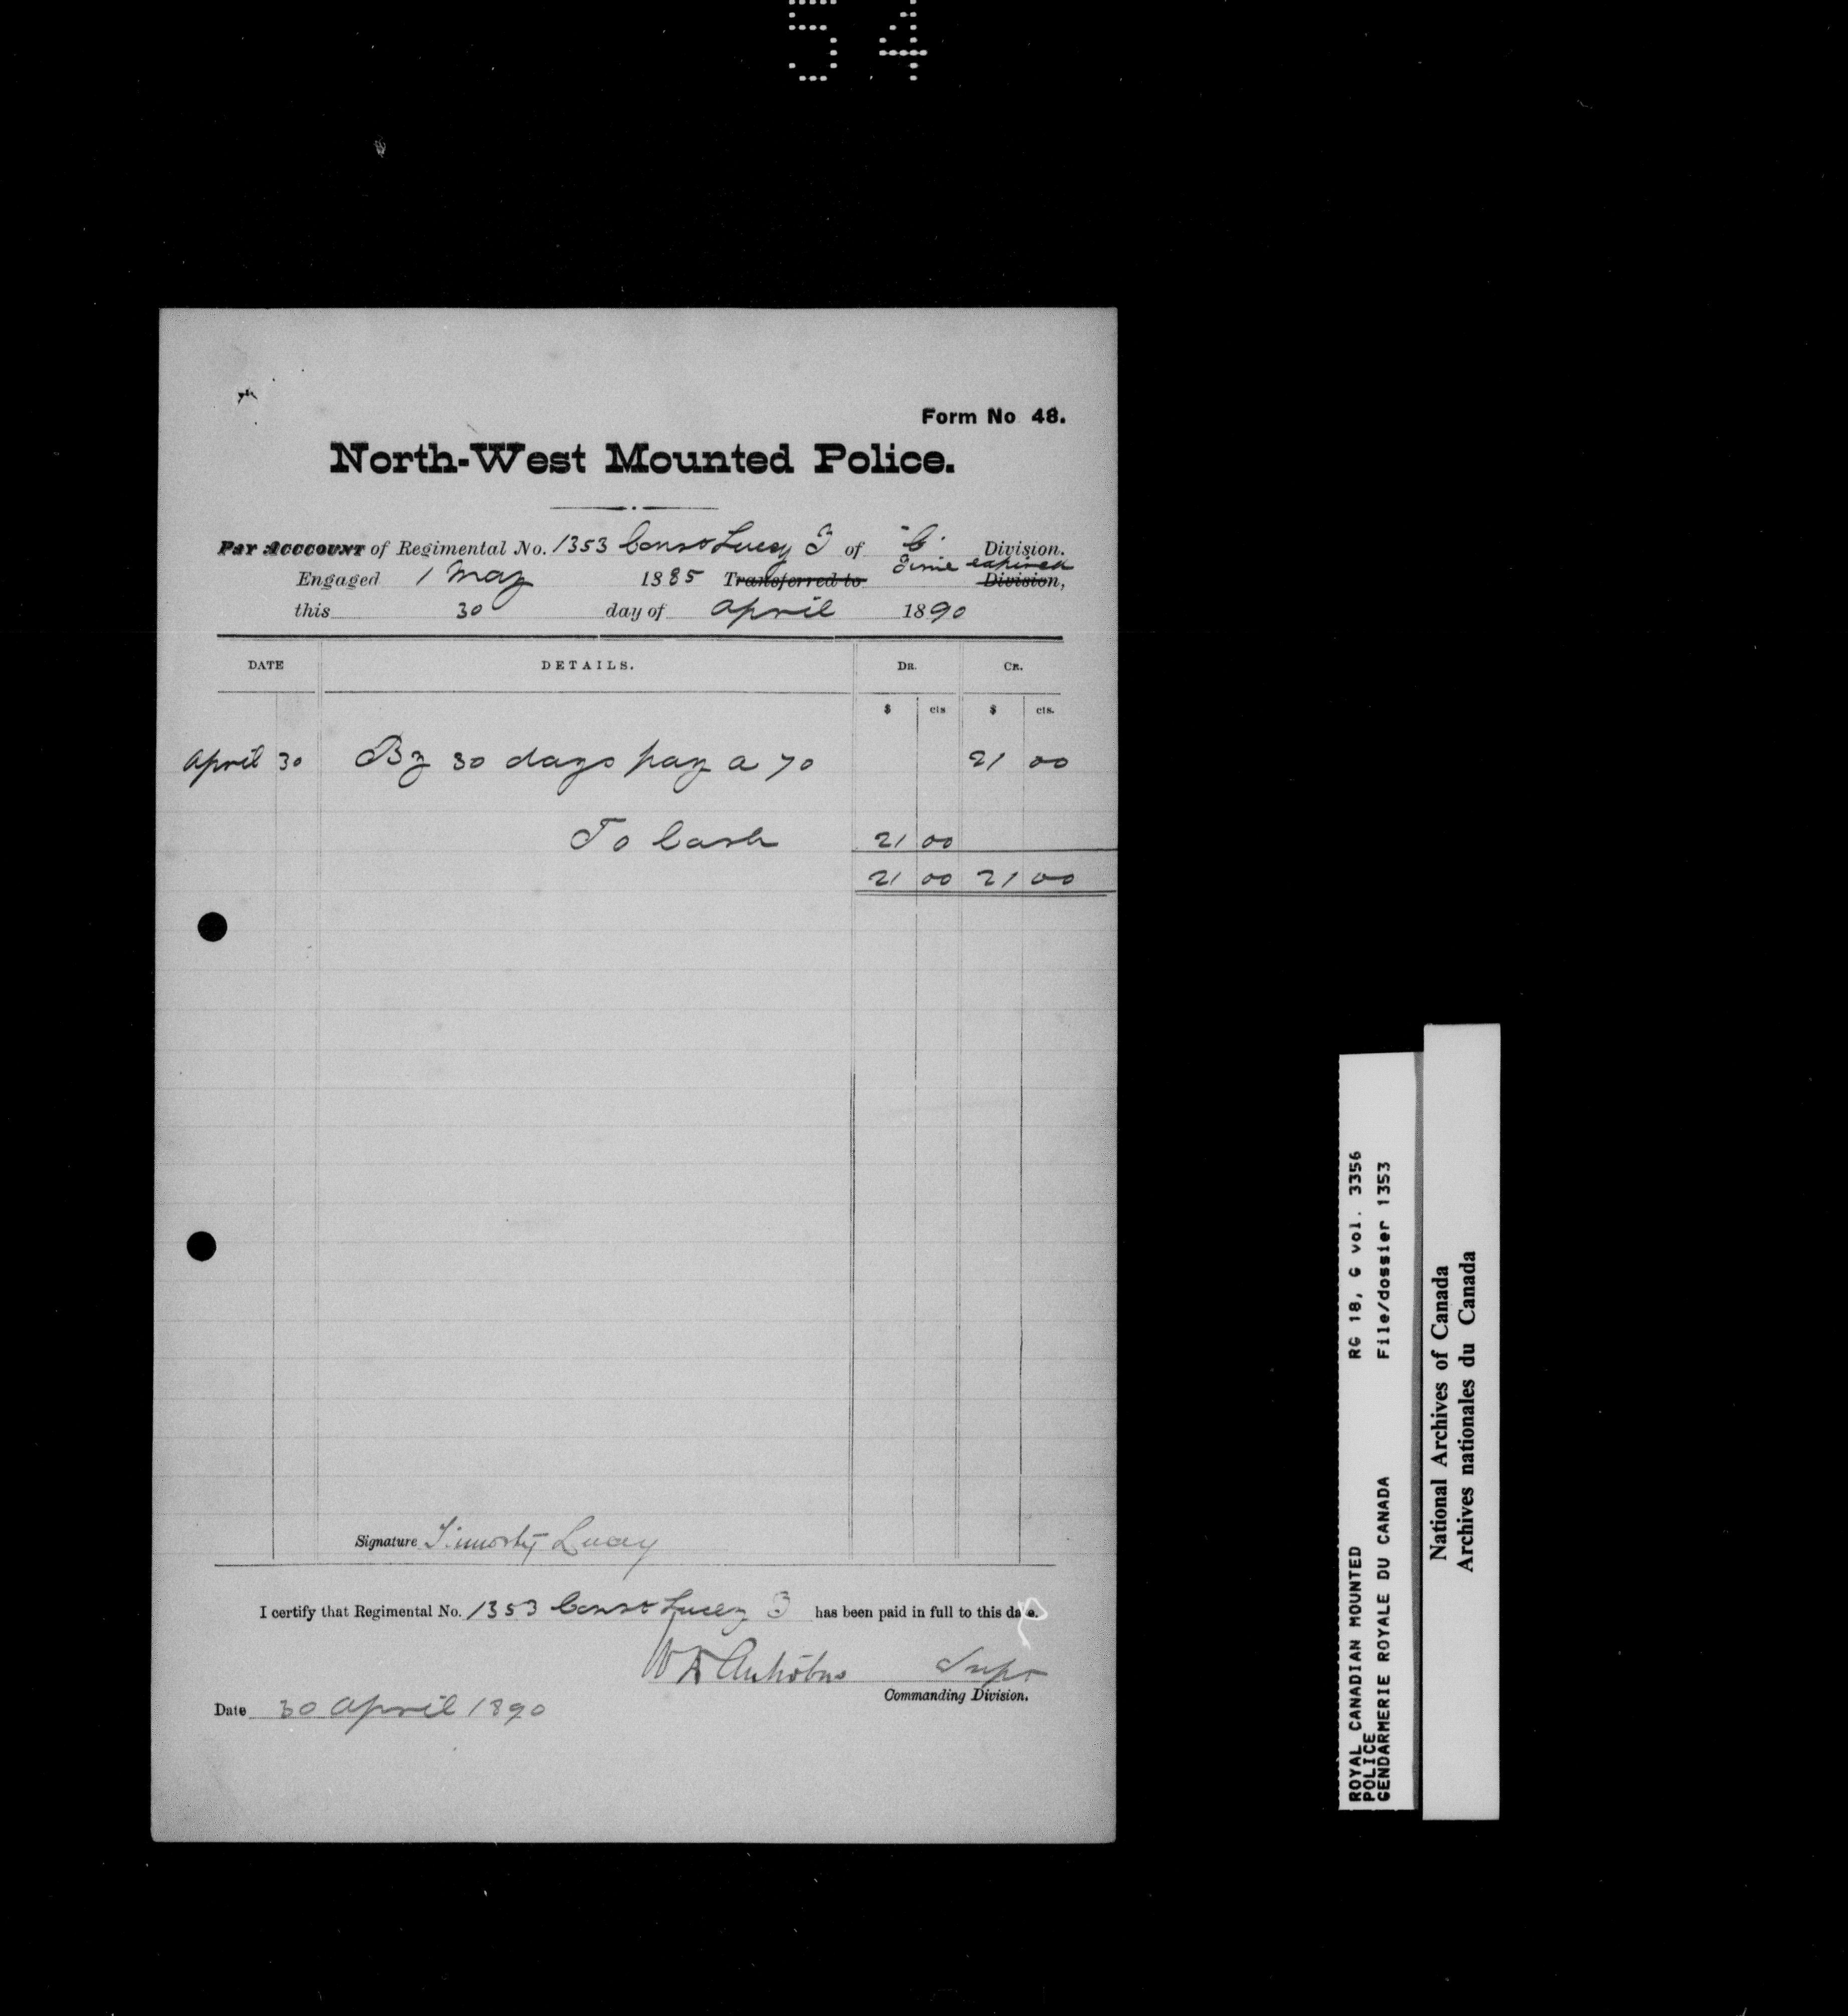 54
Form No 48.
North-West Mounted Police.
Pay Acccount of Regimental No. 1353 Const Lucey T of "C" Division.
Engaged 1 May 1885 Transferred to Time expired Division,
this 30 day of April 1890
DATE DETAILS. DR. CR.
$ cts $ cts.
April 30 By 30 days pay a 70 21 00
To Cash 21 00
21 00 21 00
Signature Timothy Lucey
I certify that Regimental No. 1353 Const Lucey T has been paid in full to this date.
W D Antrobus Supt
Commanding Division.
Date 30 April 1890
ROYAL CANADIAN MOUNTED RG 18, G vol. 3356
POLICE
GENDARMERIE ROYALE DU CANADA File/dossier 1353
National Archives of Canada
Archives nationales du Canada